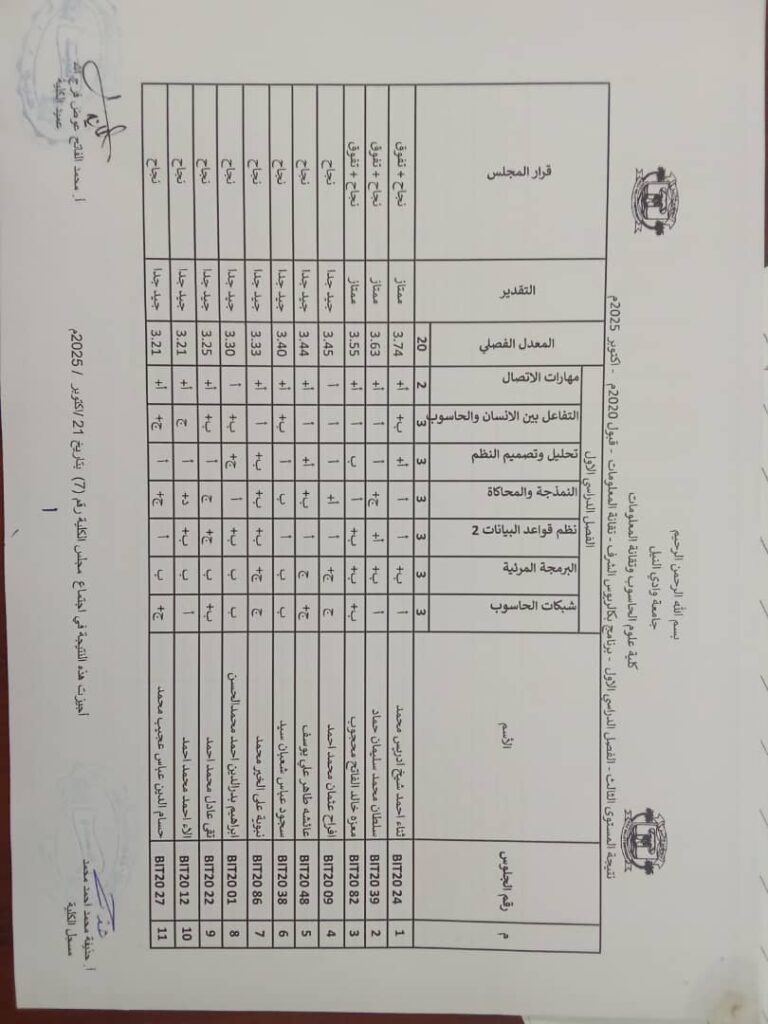 بسم الله الرحمن الرحيم
جامعة وادي النيل
كلية علوم الحاسوب وتقانة المعلومات
نتيجة المستوى الثالث - الفصل الدراسي الاول - برنامج بكالريوس الشرف - تقانة المعلومات - قبول 2020م - اكتوبر 2025م
الفصل الدراسي الاول
م رقم الجلوس الأسم شبكات الحاسوب البرمجة المرئية نظم قواعد البيانات 2 النمذجة والمحاكاة تحليل وتصميم النظم التفاعل بين الانسان والحاسوب مهارات الاتصال المعدل الفصلي التقدير قرار المجلس
3 3 3 3 3 3 2 20
1 BIT20 24 ثناء احمد شيخ ادريس محمد أ ب+ أ أ أ+ ب+ أ+ 3.74 ممتاز نجاح + تفوق
2 BIT20 39 سلطان محمد سليمان حماد أ ب+ أ+ ج+ أ أ أ+ 3.63 ممتاز نجاح + تفوق
3 BIT20 82 معزه خالد الفاتح محجوب ب+ ب+ ب+ أ ب أ أ+ 3.55 ممتاز نجاح + تفوق
4 BIT20 09 افراح عثمان محمد احمد ج ج+ أ أ+ أ أ أ 3.45 جيد جدا نجاح
5 BIT20 48 عائشه طاهر علي يوسف ج+ ج أ ب+ أ+ أ أ+ 3.44 جيد جدا نجاح
6 BIT20 38 سجود عباس شعبان سيد ب ب أ ب أ ب+ أ+ 3.40 جيد جدا نجاح
7 BIT20 86 نبوية على الخير محمد ج ج+ ب+ ب+ ب+ أ أ+ 3.33 جيد جدا نجاح
8 BIT20 01 ابراهيم بدرالدين احمد محمدالحسن ب ب ب+ أ ج+ ب+ أ 3.30 جيد جدا نجاح
9 BIT20 22 تقى عادل محمد احمد ب+ ب ج+ ج أ ب+ أ+ 3.25 جيد جدا نجاح
10 BIT20 12 الاء احمد محمد احمد أ ب ب+ د+ أ ج أ+ 3.21 جيد جدا نجاح
11 BIT20 27 حسام الدين عباس عجيب محمد ج+ ب أ ج+ أ ج+ أ+ 3.21 جيد جدا نجاح
أجيزت هذه النتيجة في اجتماع مجلس الكلية رقم (7) بتاريخ 21 /اكتوبر / 2025م
أ. حنيفة محمد احمد محمد
مسجل الكلية
أ. محمد الفاتح عوض فرج الله
عميد الكلية
1